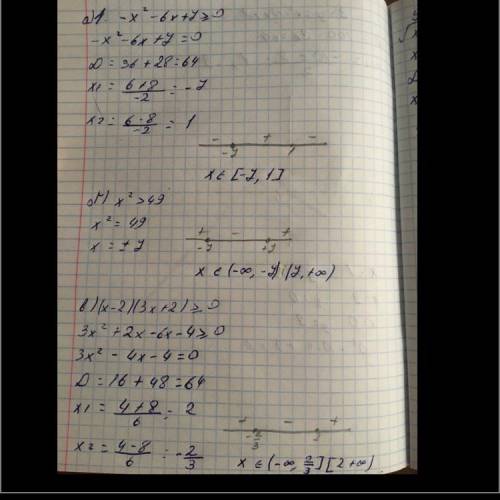 а) -x² -6x+7≥0
-x² -6x+7=0
D=36+28=64
x₁ = (6+8)/-2 = -7
x₂ = (6-8)/-2 = 1
- + -
-7 1
x ∈ [-7, 1]
б) x² > 49
x² = 49
x = ±7
+ - +
-7 +7
x ∈ (-∞, -7) (7, +∞)
в) (x-2)(3x+2) ≥ 0
3x² +2x -6x -4 ≥ 0
3x² - 4x - 4 = 0
D = 16 + 48 = 64
x₁ = (4+8)/6 = 2
+ - +
-2/3 2
x₂ = (4-8)/6 = -2/3
x ∈ (-∞, 2/3] [2 +∞)